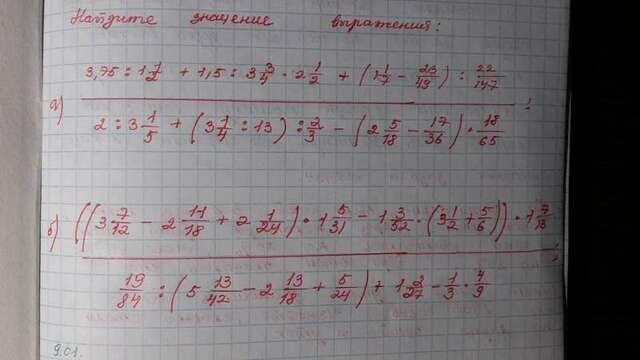 Найдите значение выражения:
3,75 : 1 1/2 + 1,5 : 3 3/4 · 2 1/2 + (1 1/7 - 23/49) : 22/147
а) ;
2 : 3 1/5 + (3 1/4 : 13) : 2/3 - (2 5/18 - 17/36) · 18/65
б) ((3 7/12 - 2 11/18 + 2 1/24) · 1 5/31 - 1 3/52 · (3 1/2 + 5/6)) · 1 7/13 ;
19/84 : (5 13/42 - 2 13/18 + 5/24) + 1 2/27 - 1/3 · 4/9
9.01.